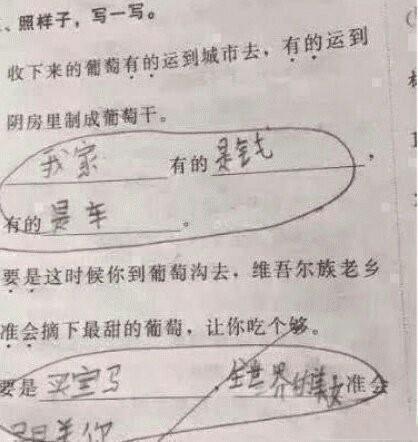 、照样子，写一写。
收下来的葡萄有的运到城市去，有的运到
阴房里制成葡萄干。
我家有的是钱，
有的是车。
要是这时候你到葡萄沟去，维吾尔族老乡
准会摘下最甜的葡萄，让你吃个够。
要是买宝马，全世界的美女准会
羡你